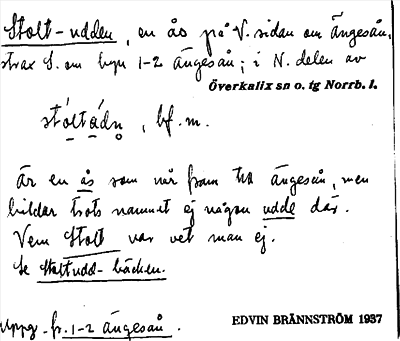 Stolt-udden, en ås på V. sidan om Ängesån,
strax S. om byn 1-2 Ängesån; i N. delen av
Överkalix sn o. tg Norrb. l.
stóltådn̥, bf. m.
Är en ås som når fram till Ängesån, men
bildar trots namnet ej någon udde där.
Vem Stolt var vet man ej.
Se Stoltudd-bäcken.
Uppg. fr. 1-2 Ängesån.
EDVIN BRÄNNSTRÖM 1937